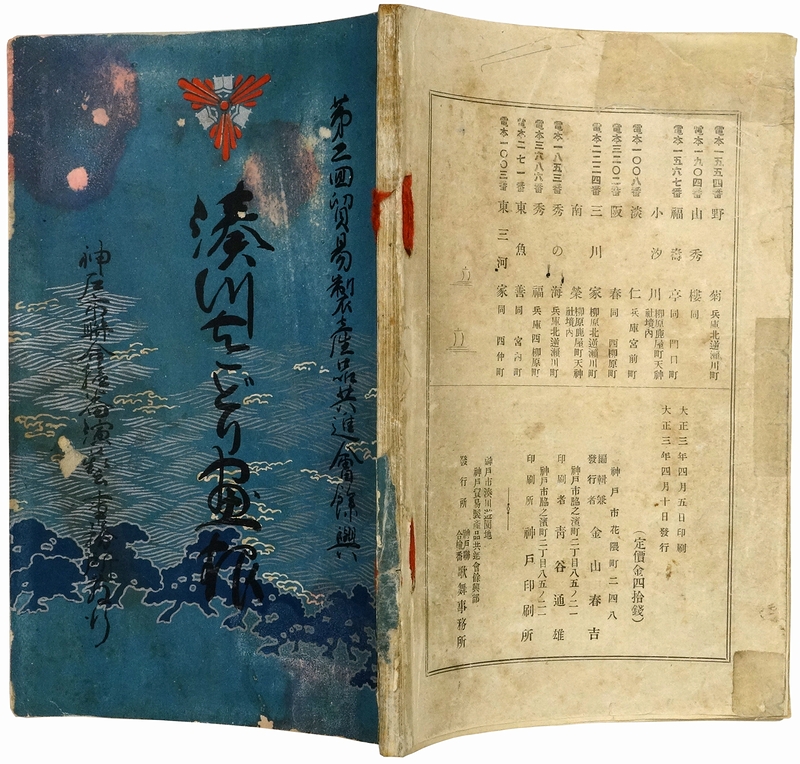 第二回貿易製産品共進會餘興
湊川をどり画報
神戸聯合検番演藝事務所発行
電本一五五四番 野菊 兵庫北逆瀬川町
電本一九〇四番 山秀樓 同
電本一五六七番 福壽亭 同 門口町
小汐川 柳原鹿屋町天神社境內
電本一〇〇八番 淡仁 兵庫宮前町
電本三二〇二番 阪春 同 西柳原町
電本二二二四番 三川家 柳原北逆瀬川町
南榮 柳原鹿屋町天神社境內
電本一八五三番 秀の海 兵庫北逆瀬川町
電本三六八六番 秀福 兵庫西柳原町
電本二七一番 東魚善 同 宮內町
電本一〇〇三番 東三河家 同 西仲町
大正三年四月五日印刷
大正三年四月十日發行
(定價金四拾錢)
神戸市花隈町二四八
編輯兼發行者 金山春吉
神戸市脇之濱町二丁目八五ノ二二
印刷者 靑谷通雄
神戸市脇之濱町二丁目八五ノ二二
印刷所 神戸印刷所
神戸市湊川遊園地
神戸貿易製產品共進會餘興部
發行所 神戸聯合檢番 歌舞事務所